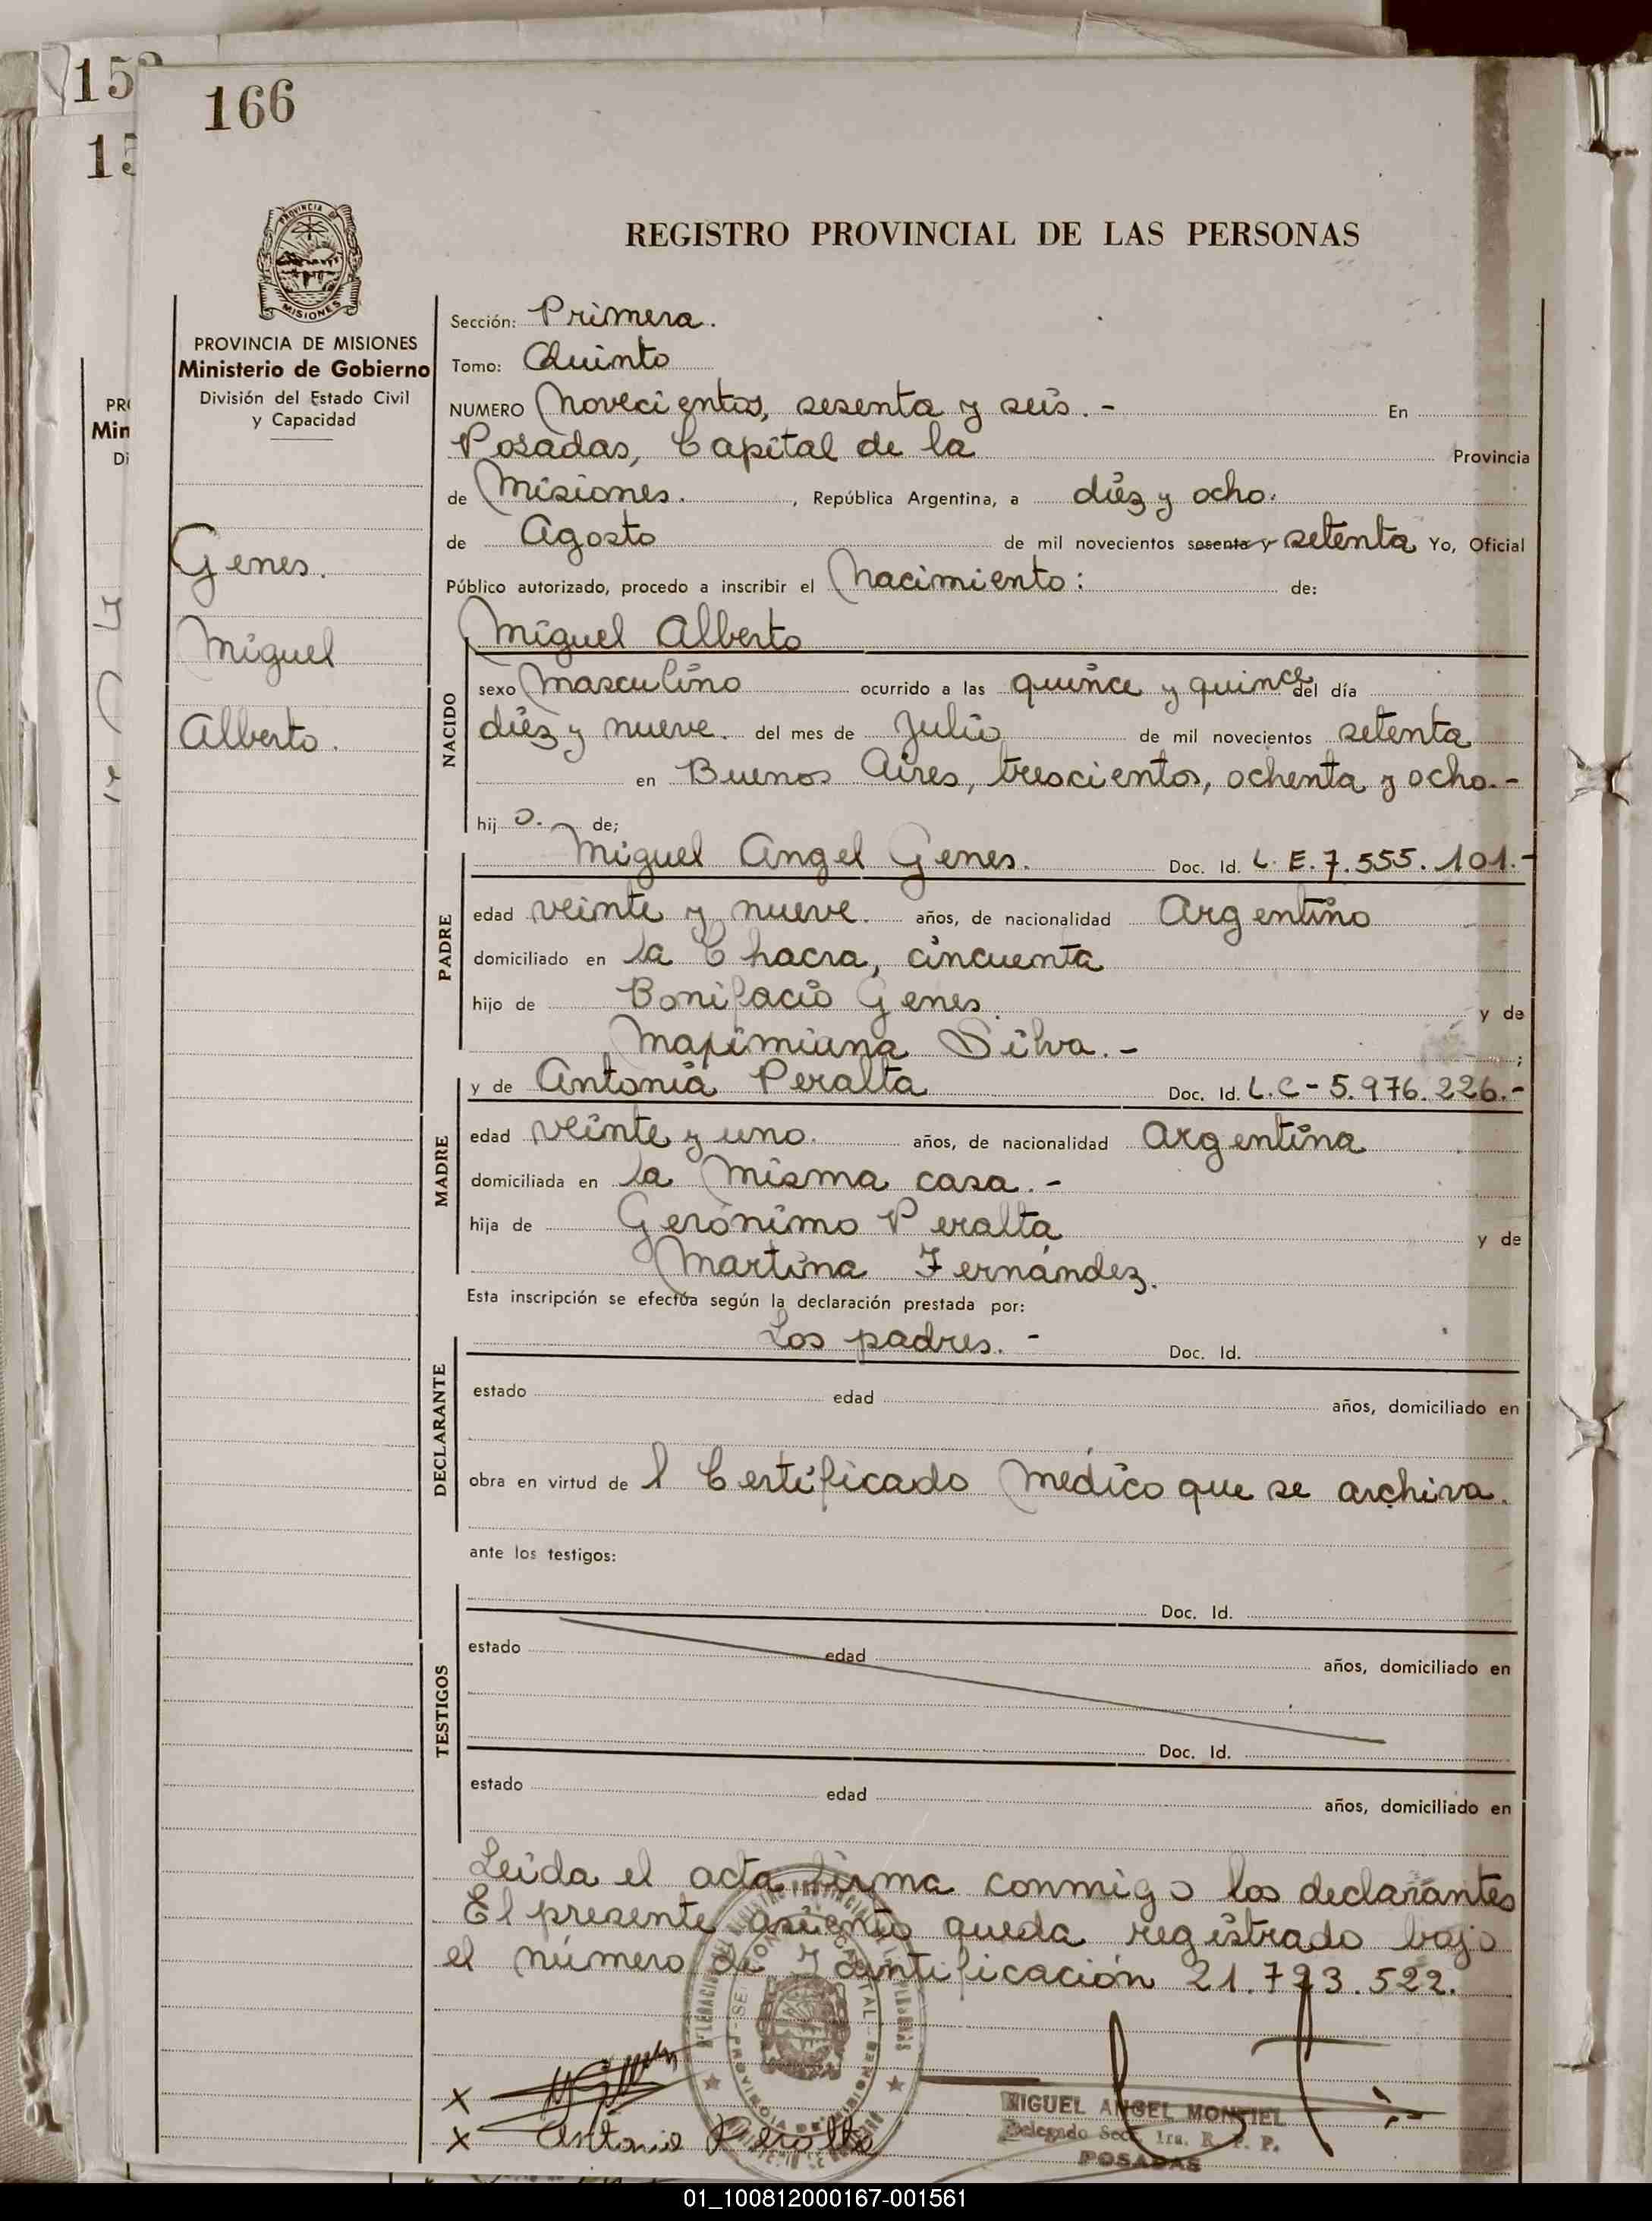 158
15
166
REGISTRO PROVINCIAL DE LAS PERSONAS
PROVINCIA DE
MISIONES
PROVINCIA DE MISIONES
Ministerio de Gobierno
División del Estado Civil
y Capacidad
PRO
Min
Di
Genes.
Miguel
Alberto.
Sección: Primera.
Tomo: Quinto
NUMERO Novecientos, sesenta y seis. - En
Posadas, Capital de la Provincia
de Misiones. , República Argentina, a diéz y ocho.
de Agosto de mil novecientos sesenta y setenta Yo, Oficial
Público autorizado, procedo a inscribir el Nacimiento: de:
Miguel Alberto
NACIDO
sexo Masculino ocurrido a las quince y quince del día
diéz y nueve. del mes de Julio de mil novecientos setenta
en Buenos Aires, trescientos, ochenta y ocho.-
hij o. de;
PADRE
Miguel Angel Genes. Doc. Id. L. E. 7.555.101.-
edad veinte y nueve. años, de nacionalidad Argentino
domiciliado en la Chacra, cincuenta
hijo de Bonifacio Genes. y de
Maximiana Silva. - ;
MADRE
y de Antonia Peralta Doc. Id. L.C - 5.976.226.-
edad veinte y uno. años, de nacionalidad Argentina
domiciliada en la misma casa. -
hija de Gerónimo Peralta y de
Martina Fernández.
Esta inscripción se efectúa según la declaración prestada por:
DECLARANTE
Los padres. - Doc. Id.
estado edad años, domiciliado en
obra en virtud de l Certificado Medico que se archiva.
ante los testigos:
TESTIGOS
Doc. Id.
estado edad años, domiciliado en
Doc. Id.
estado edad años, domiciliado en
Leida el acta firma conmigo los declarantes
El presente asiento queda registrado bajo
el número de Identificación 21.723.522.
x
x Antonia Peralta
MIGUEL ANGEL MONTIEL
Delegado Secc. 1ra. R. P. P.
POSADAS
01_100812000167-001561